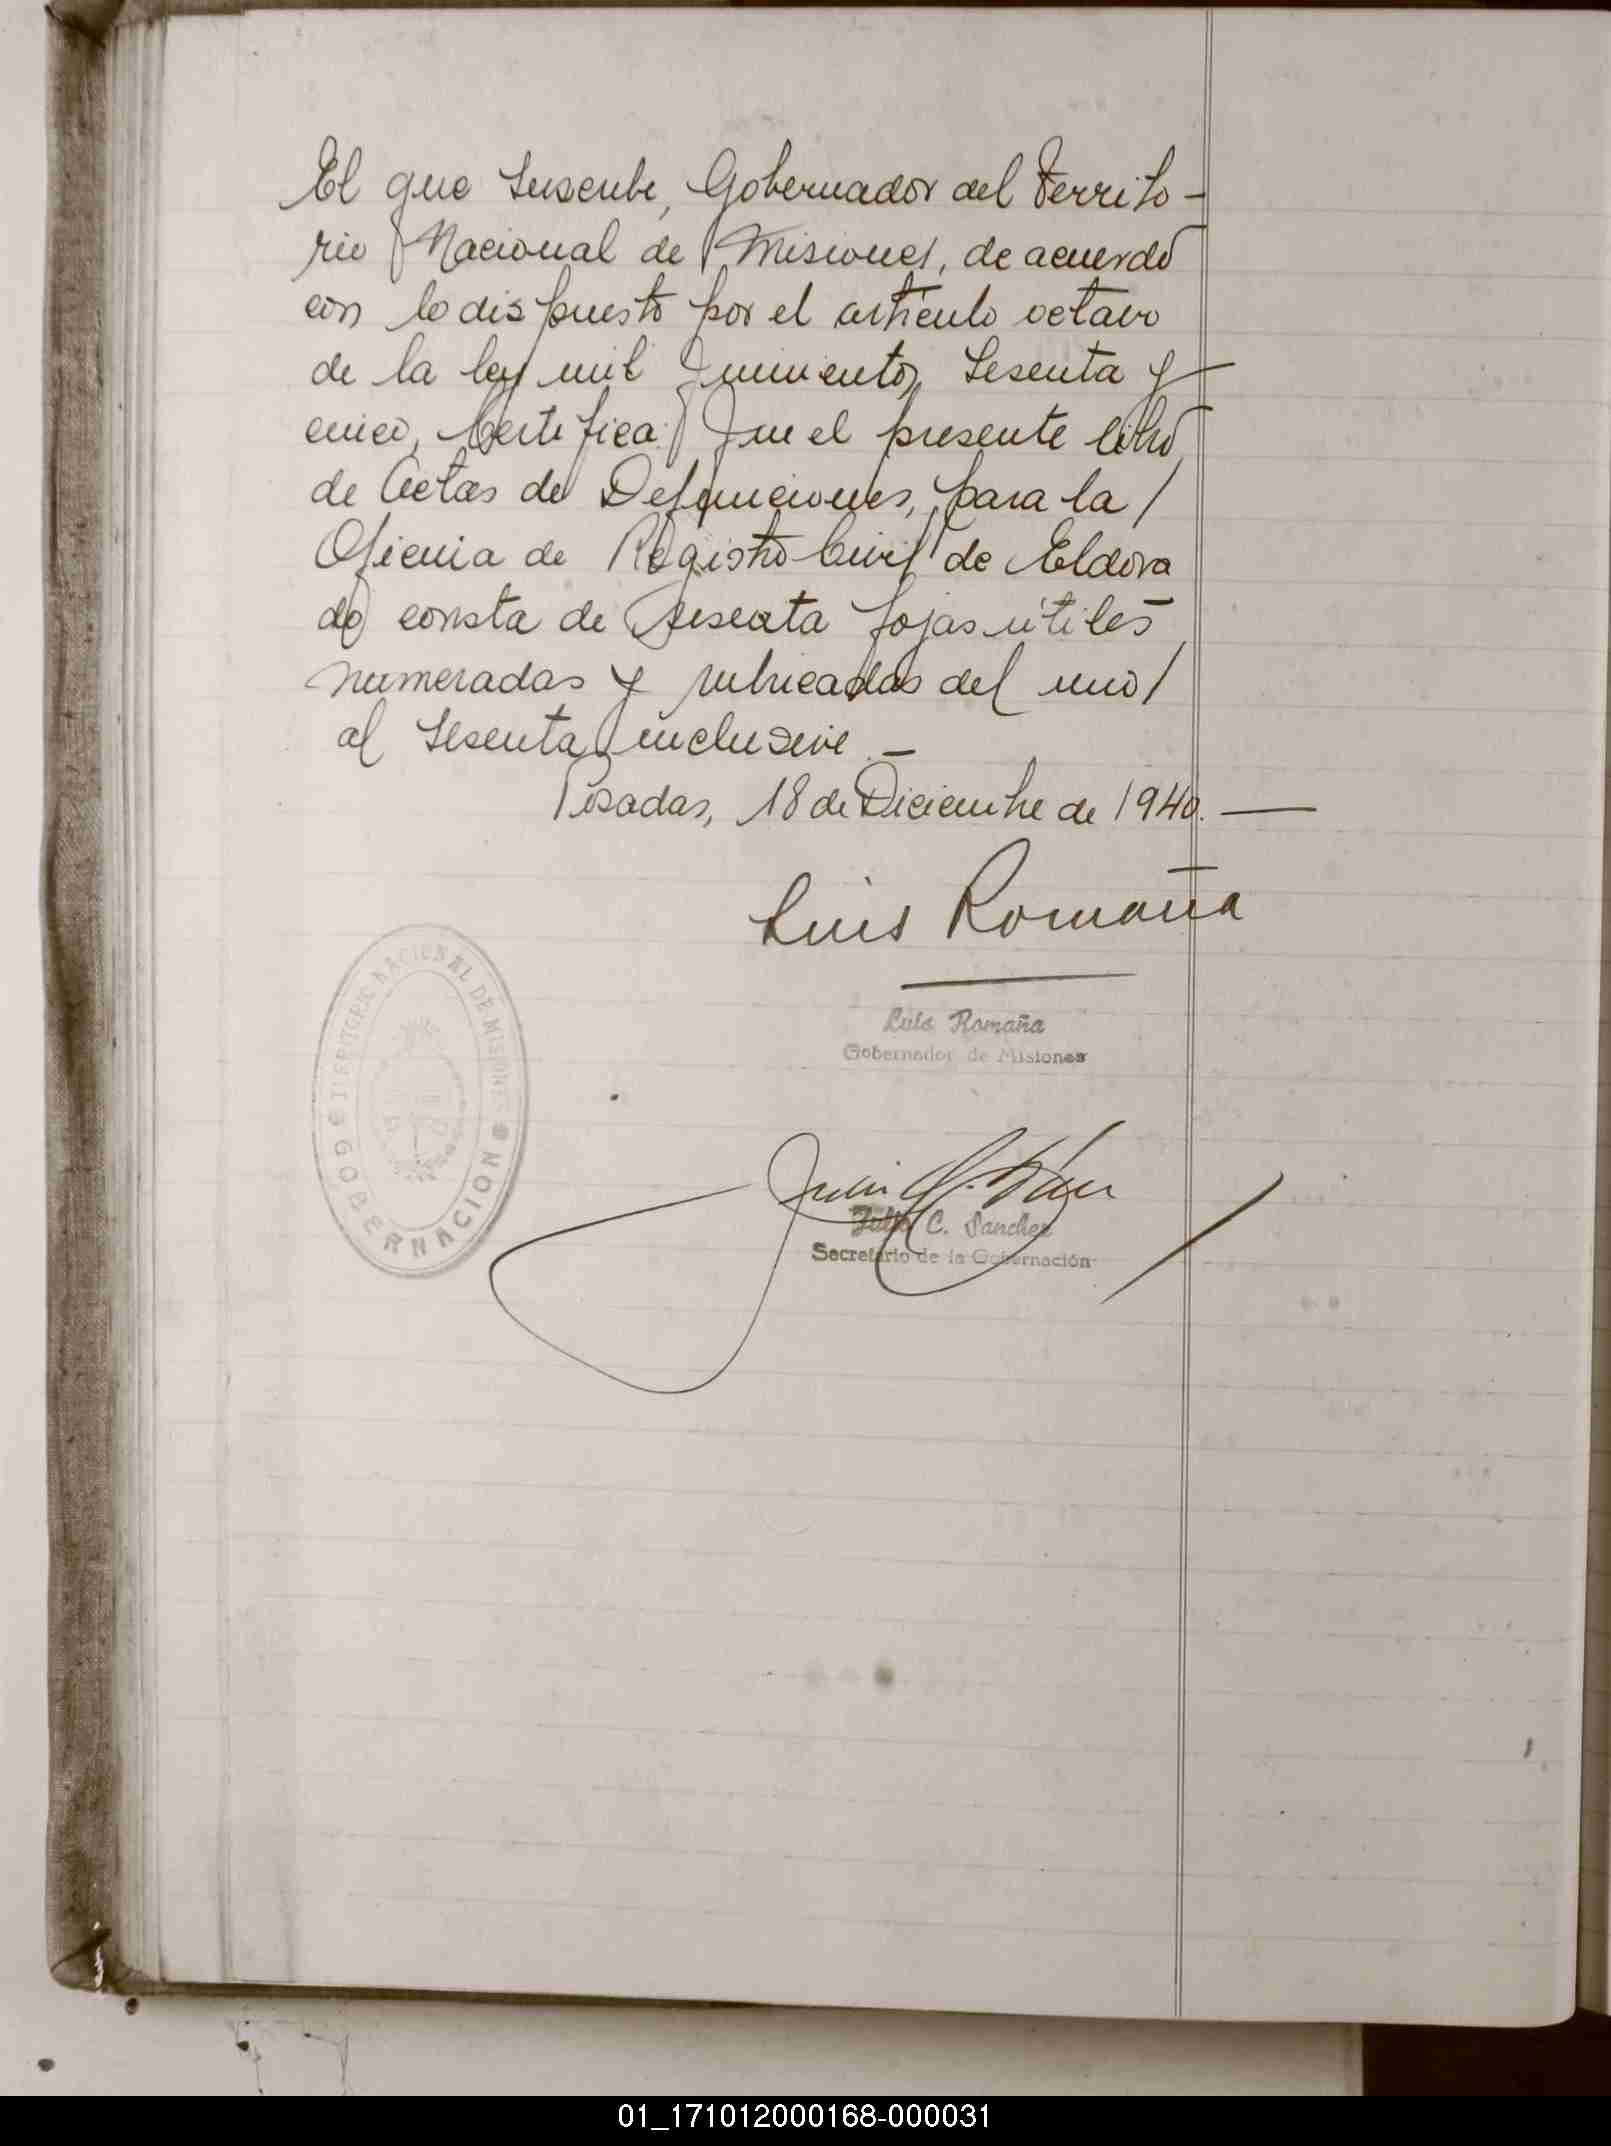 El que suscribe, Gobernador del Territo-
rio Nacional de Misiones, de acuerdo
con lo dispuesto por el artículo octavo
de la ley mil quinientos sesenta y
cinco, Certifica: Que el presente libro
de Actas de Defunciones, para la /
Oficina de Registro Civil de Eldora
do consta de sesenta fojas útiles
numeradas y rubricadas del uno /
al sesenta inclusive. -
Posadas, 18 de Diciembre de 1940. —
Luis Romaña
Luis Romaña
Gobernador de Misiones
TERRITORIO NACIONAL DE MISIONES
GOBERNACION
Julio C. Sanchez
Secretario de la Gobernación
01_171012000168-000031